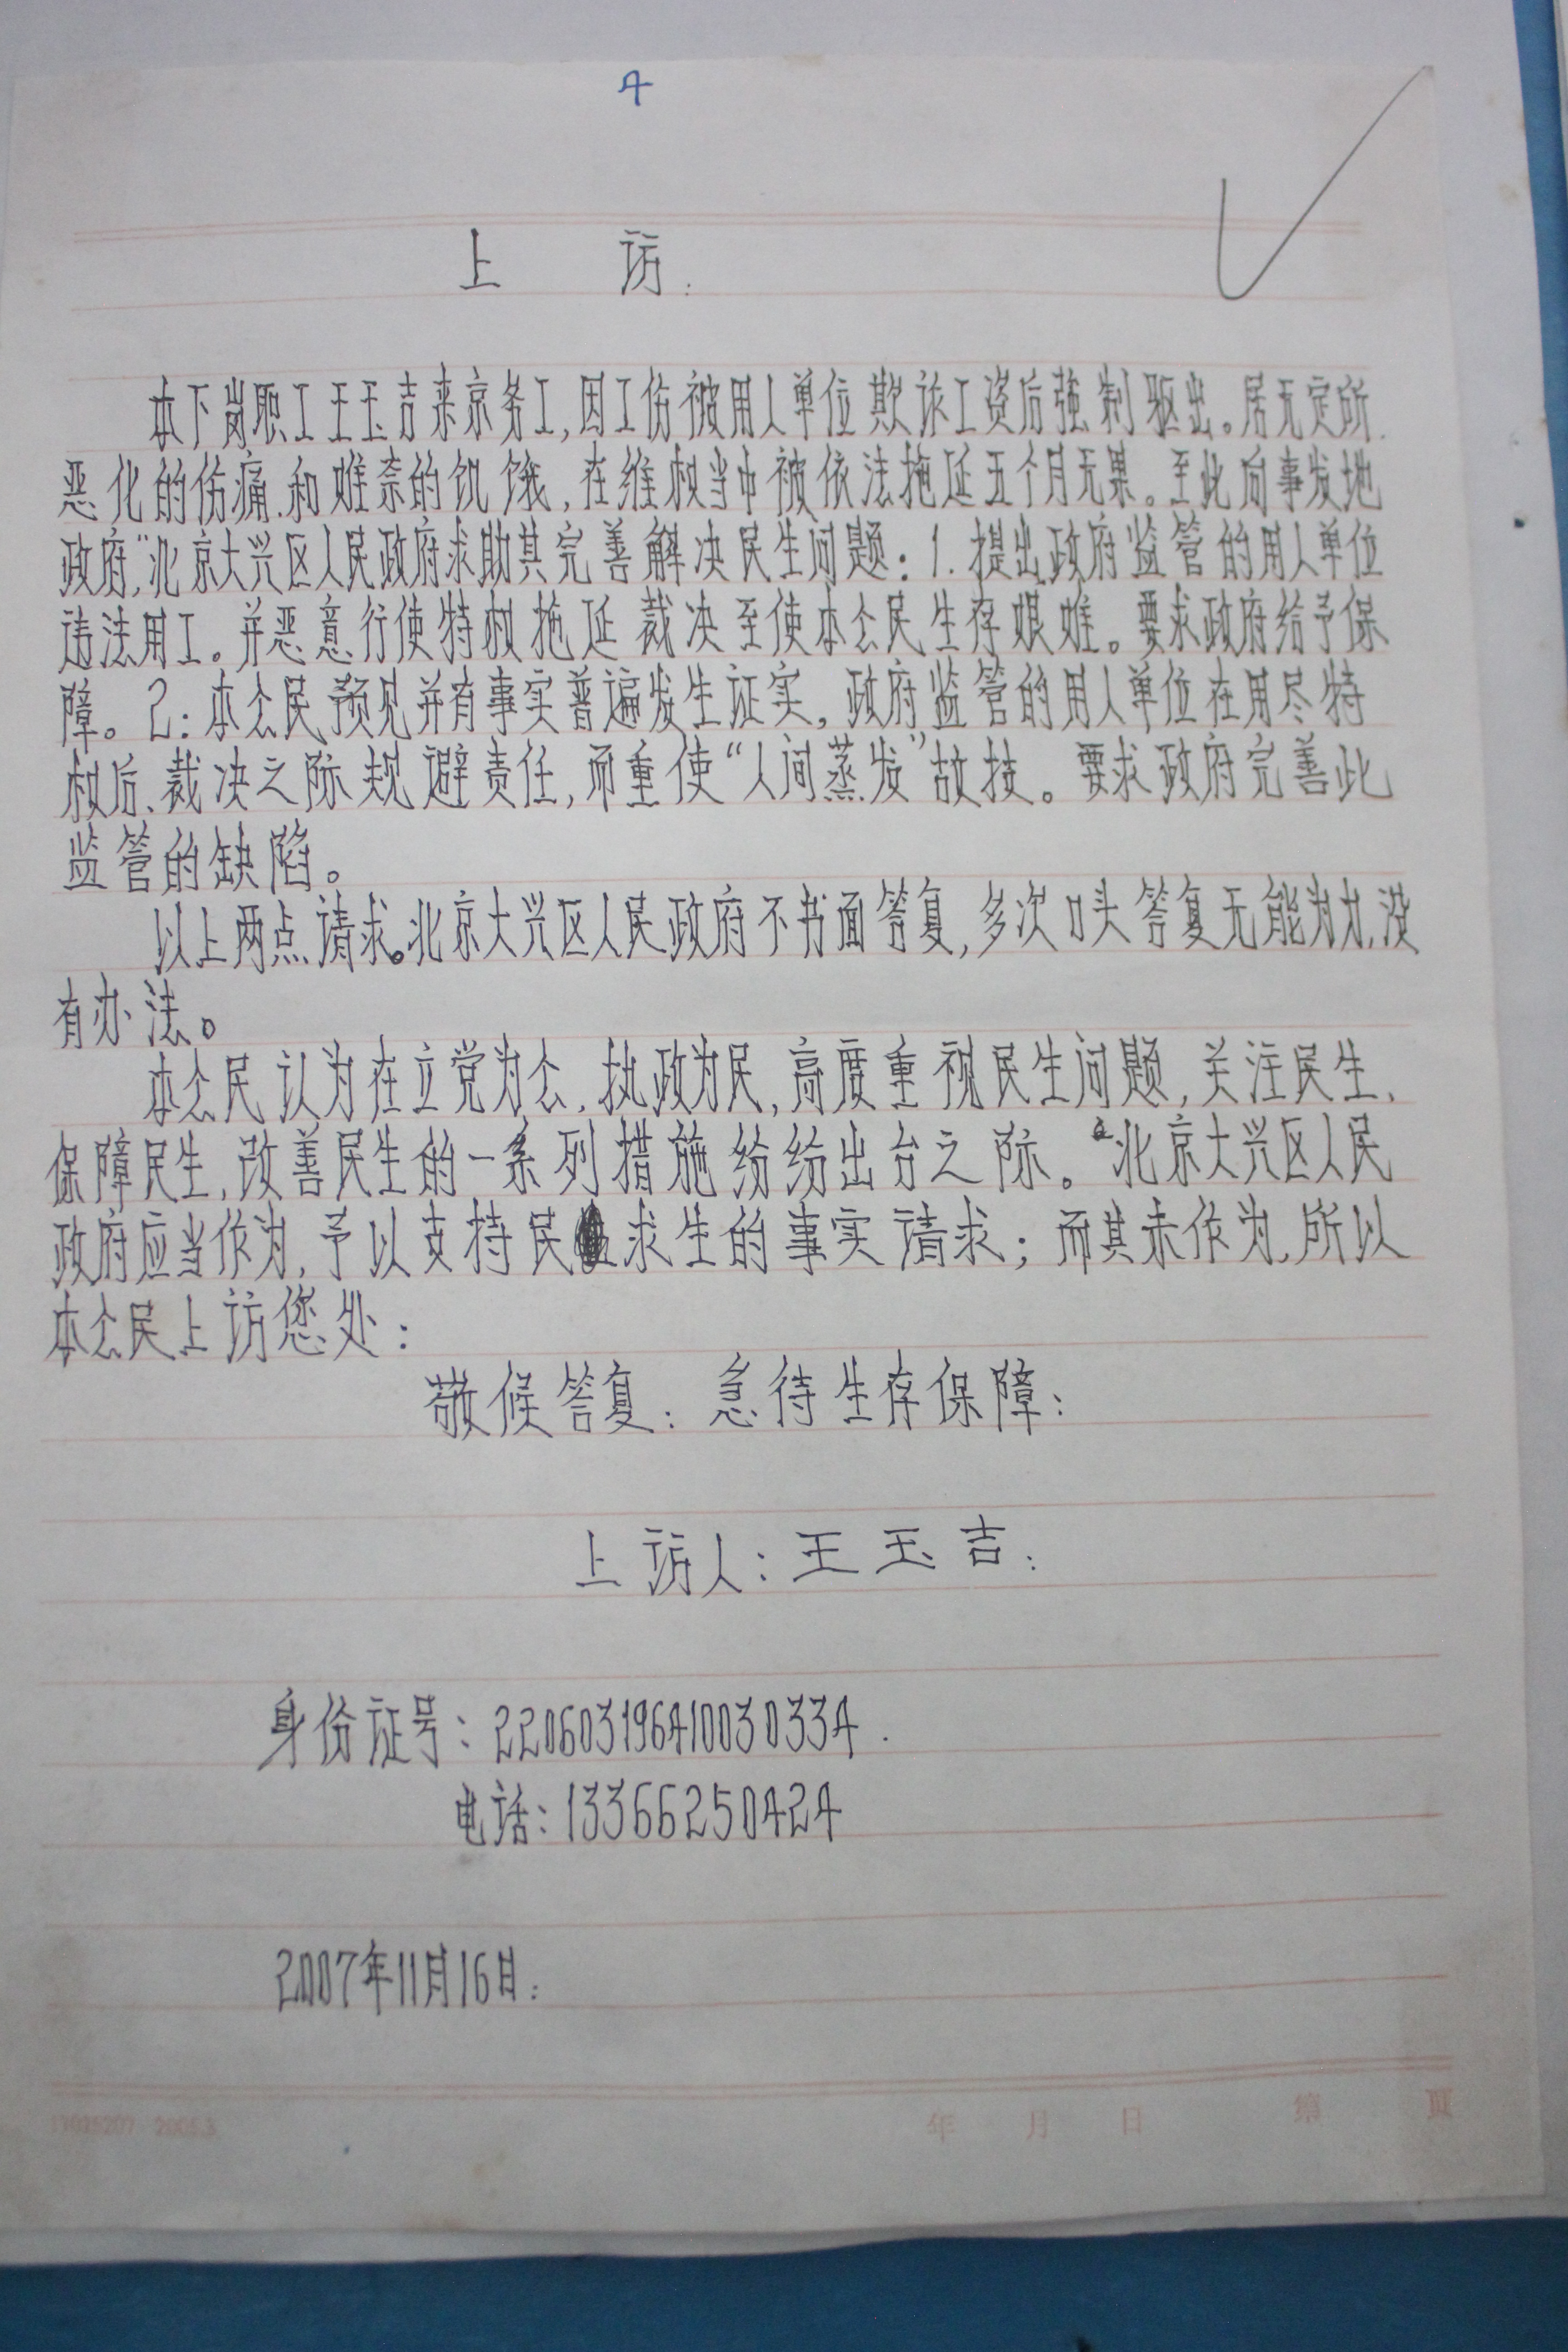 4
上 访:
本下岗职工王玉吉来京务工,因工伤被用人单位欺诈工资后强制驱出。居无定所.
恶化的伤痛.和难奈的饥饿,在维权当中被依法拖延五个月无果。至此向事发地
政府,"北京大兴区人民政府求助其完善解决民生问题:1.提出政府监管的用人单位
违法用工。并恶意行使特权拖延裁决至使本公民生存艰难。要求政府给予保
障。2:本公民预见并有事实普遍发生证实,政府监管的用人单位在用尽特
权后、裁决之际规避责任,而重使“人间蒸发”故技。要求政府完善此
监管的缺陷。
以上两点请求。北京大兴区人民政府不书面答复,多次口头答复无能为力,没
有办法。
本公民认为在立党为公.执政为民,高度重视民生问题,关注民生、
保障民生,改善民生的一系列措施纷纷出台之际。北京大兴区人民
政府应当作为,予以支持民求生的事实请求;而其未作为,所以
本公民上访您处:
敬候答复:急待生存保障:
上访人:王玉吉:
身份证号:220603196410030334.
电话:13366250424
2007年11月16日:
11025207 2005.3
年 月 日 第 页